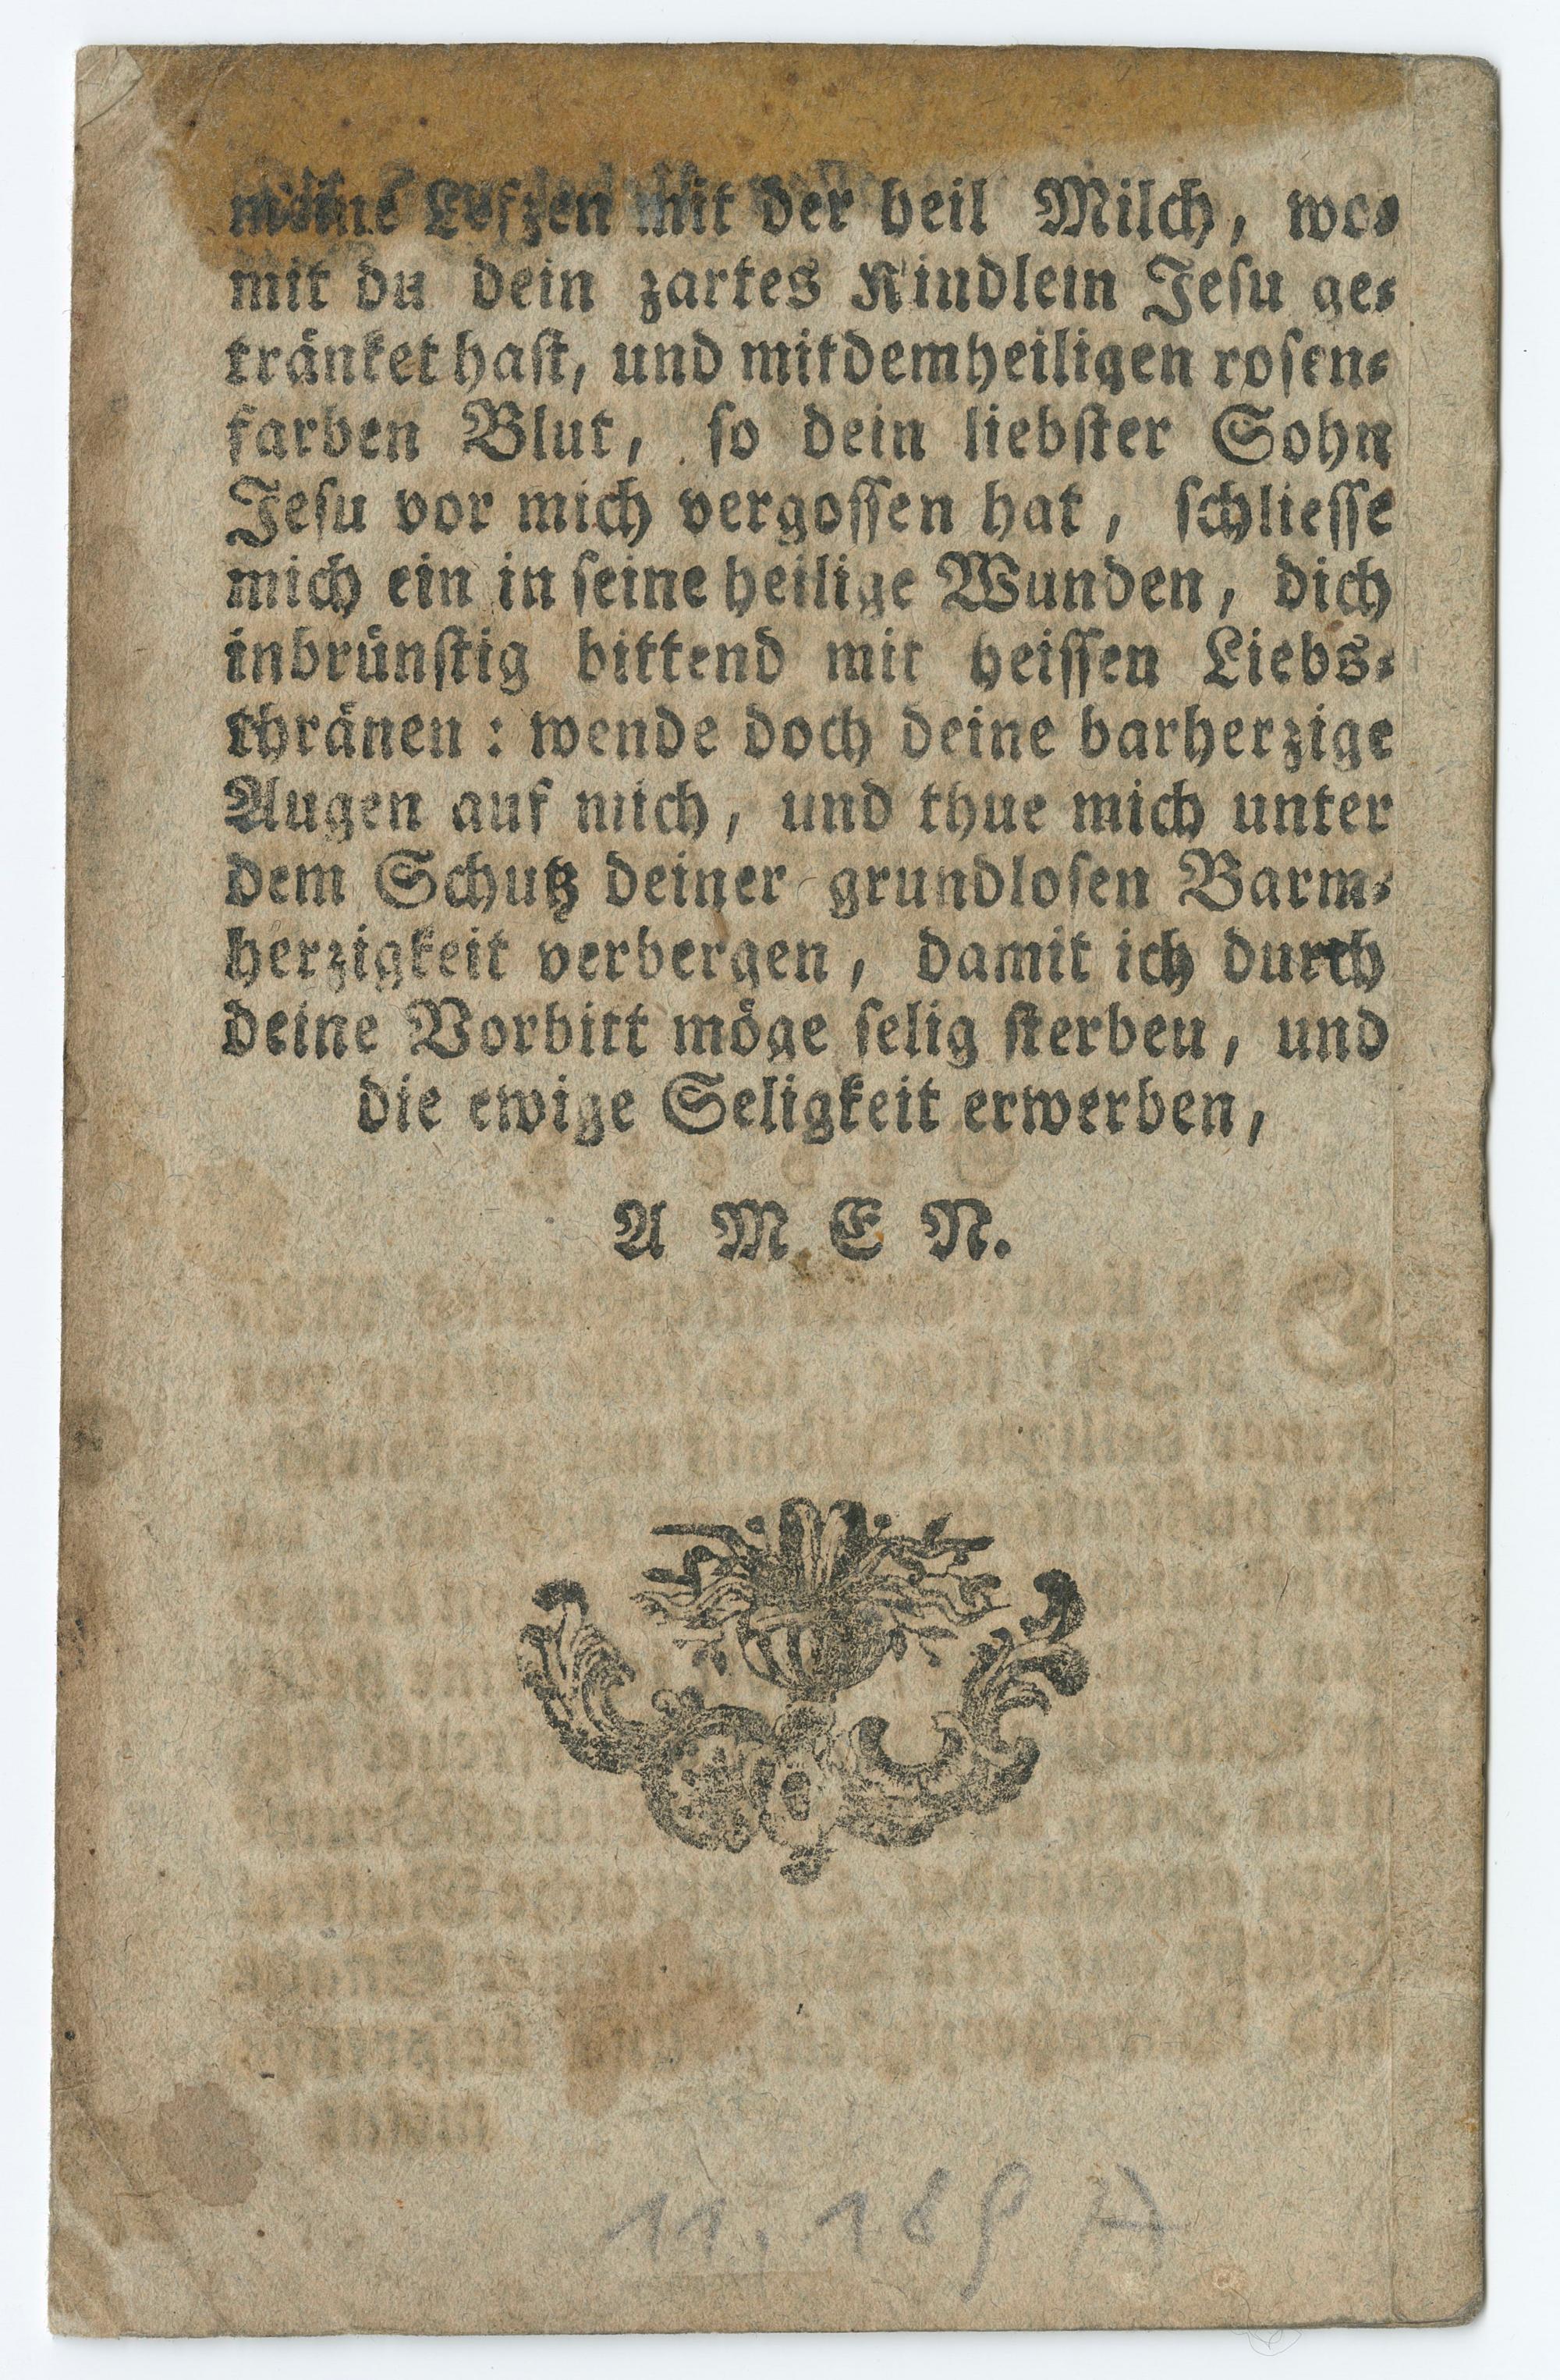 meine Lefzen mit der heil Milch, wo⸗
mit du dein zartes Kindlein Jesu ge⸗
tränket hast, und mit dem heiligen rosen⸗
farben Blut, so dein liebster Sohn
Jesu vor mich vergossen hat, schliesse
mich ein in seine heilige Wunden, dich
inbrünstig bittend mit heissen Liebs⸗
thränen: wende doch deine barherzige
Augen auf mich, und thue mich unter
dem Schutz deiner grundlosen Barm⸗
herzigkeit verbergen, damit ich durch
deine Vorbitt möge selig sterben, und
die ewige Seligkeit erwerben,
A M E N.
11, 189 A